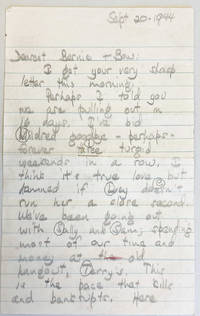 Sept 20-1944
Dearest Bernie + Bow:
I got your very sharp
letter this morning.
Perhaps I told you
we are pulling out in
10 days. I've bid
Mildred goodbye - perhaps -
forever three turgid
weekends in a row, I
think it's true love but
damned if Lucy doesn't
run her a close second.
We've been going out
with Sally and Jenni, spending
most of our time and
money at the old
hangout, Terry's. This
is the pace that kills
and bankrupts. Here